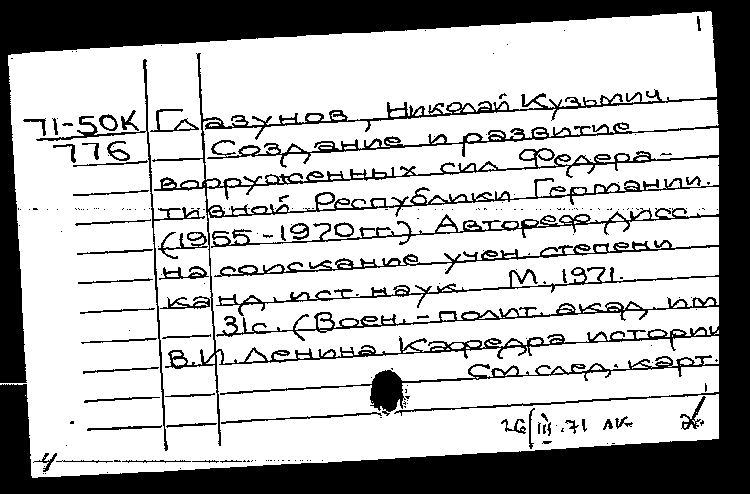 1
71-50К Глазунов, Николай Кузьмич.
776 Создание и развитие
вооруженных сил Федера-
тивной Республики Германии.
(1955-1970 гг.). Автореф. дисс.
на соискание учен. степени
канд. ист. наук. М., 1971.
31с. (Воен.-полит. акад. им
В.И. Ленина. Кафедра истории
См. след. карт.
26/III.71
4